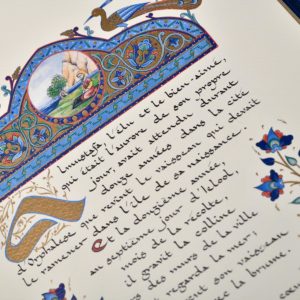 lmustafa l'élu et le bien-aimé,
qui était l'aurore de son propre
jour, avait attendu durant
douze années dans la cité
d'Orphalese que revint le vaisseau qui devait
le ramener dans l'île de sa naissance.
Et la douzième année,
au septième jour d'Ielool,
mois de la récolte,
il gravit la colline
des murs de la ville
regarda la mer;
son vaisseau
la brume.